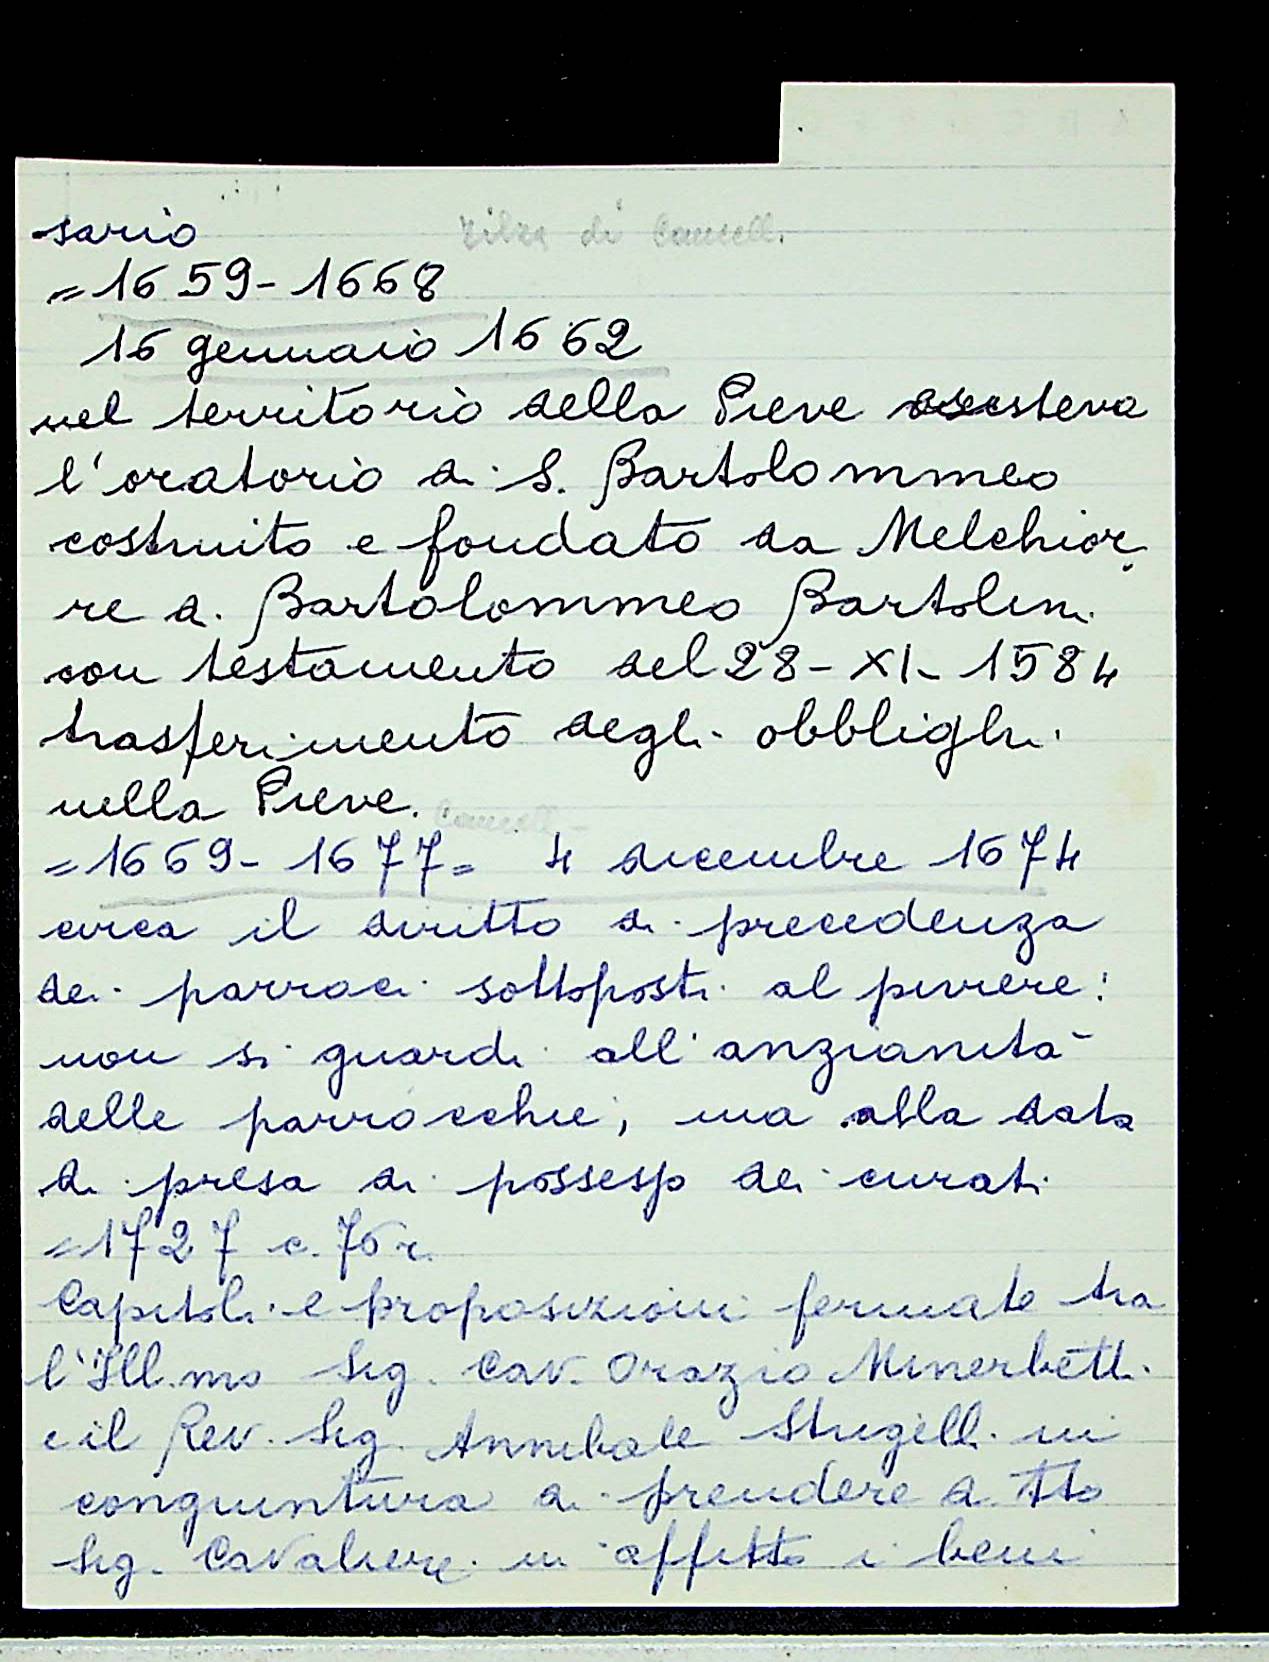 sario filza di Cancell.
= 1659 - 1668
16 gennaio 1662
nel territorio della Pieve esisteva
l'oratorio di S. Bartolommeo
costruito e fondato da Melchior
re di Bartolommeo Bartolini
con testamento del 28 - XI - 1584
trasferimento degli obblighi
nella Pieve. Cancell -
= 1669 - 1677 = 4 dicembre 1674
circa il diritto di precedenza
dei parroci sottoposti al piviere:
non si guardi all'anzianità
delle parrocchie, ma alla data
di presa di possesso dei curati
= 1727 c. 76 r.
Capitoli e proposizioni fermate tra
l'Ill.mo Sig. Cav. Orazio Minerbetti
e il Rev. Sig. Annibale Strigelli in
conguintura di prendere d. tto
Sig. Cavaliere in affitto i beni